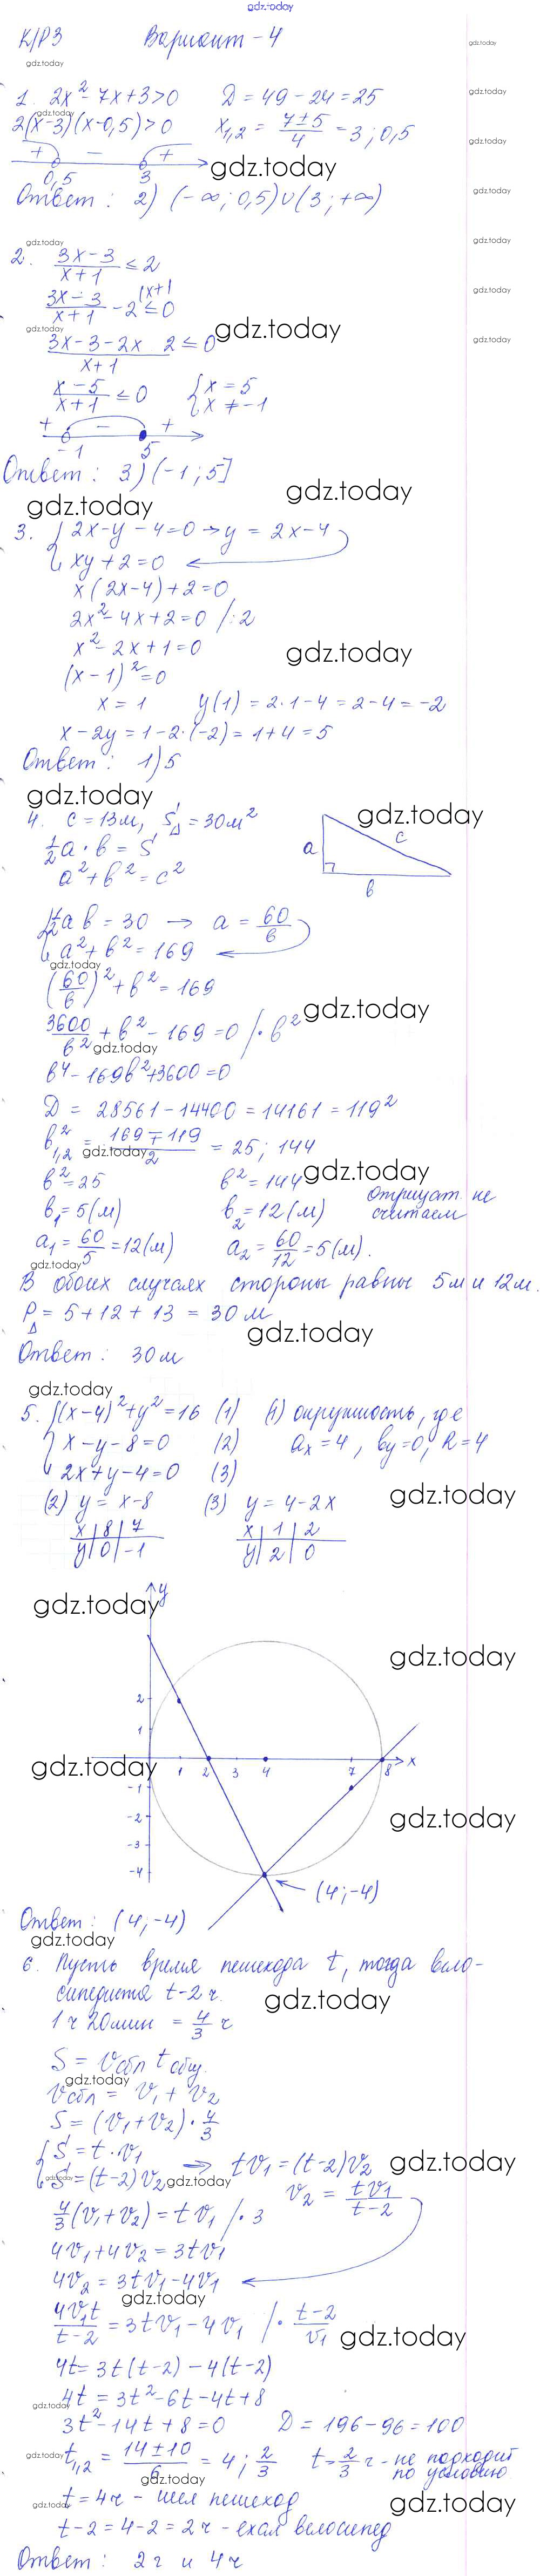 gdz.today
К/Р3 Вариант - 4
gdz.today
gdz.today
1. 2x² - 7x + 3 > 0 D = 49 - 24 = 25
gdz.today
gdz.today
2(x-3)(x-0,5) > 0 x₁,₂ = (7±5)/4 = 3; 0,5
gdz.today
+ - +
gdz.today
0,5 3
Ответ: 2) (-∞; 0,5)∪(3; +∞)
gdz.today
gdz.today
gdz.today
2. (3x-3)/(x+1) ≤ 2
gdz.today
(3x-3)/(x+1) - 2 ≤ 0 (x+1)
gdz.today
gdz.today
gdz.today
(3x-3-2x 2)/(x+1) ≤ 0
(x-5)/(x+1) ≤ 0 { x = 5
x ≠ -1
+ - +
-1 5
Ответ: 3) (-1; 5]
gdz.today
gdz.today
3. { 2x-y-4=0 → y = 2x-4
xy+2=0
x(2x-4)+2=0
2x²-4x+2=0 /:2
x²-2x+1=0
gdz.today
(x-1)²=0
x=1 y(1) = 2·1-4 = 2-4 = -2
x-2y = 1-2·(-2) = 1+4 = 5
Ответ: 1) 5
gdz.today
gdz.today
4. c = 13м, S△ = 30м²
½a·b = S
a²+b²=c²
a c
b
{ ½ab = 30 → a = 60/b
a²+b² = 169
gdz.today
(60/b)²+b² = 169
gdz.today
3600/b² + b² - 169 = 0 /·b²
gdz.today
b⁴-169b²+3600=0
D = 28561-14400 = 14161 = 119²
b²₁,₂ = (169∓119)/2 = 25; 144
gdz.today
gdz.today
b²=25 b²=144 Отрицат не
b₁=5(м) b₂=12(м) считаем
a₁=60/5=12(м) a₂=60/12=5(м).
gdz.today
В обоих случаях стороны равны 5м и 12м.
P△ = 5+12+13 = 30м
gdz.today
Ответ: 30м
gdz.today
5. { (x-4)²+y²=16 (1) (1) окружность, где
x-y-8=0 (2) aₓ=4, bᵧ=0, R=4
2x+y-4=0 (3)
gdz.today
(2) y = x-8 (3) y = 4-2x
x | 8 | 7 x | 1 | 2
y | 0 | -1 y | 2 | 0
y
gdz.today
gdz.today
2
1
gdz.today
1 2 3 4 7 8 x
-1
gdz.today
-2
-3
-4
(4;-4)
Ответ: (4;-4)
gdz.today
6. Пусть время пешехода t, тогда вело-
сипедиста t-2 ч.
gdz.today
1ч 20мин = 4/3 ч
S = vсбл tобщ.
gdz.today
vсбл = v₁ + v₂
S = (v₁+v₂)·4/3
{ S = t·v₁
S = (t-2)v₂ ⇒ tv₁=(t-2)v₂
gdz.today
gdz.today
gdz.today
v₂ = tv₁/(t-2)
4/3(v₁+v₂) = tv₁ /·3
4v₁+4v₂=3tv₁
4v₂ = 3tv₁-4v₁
gdz.today
4v₁t/(t-2) = 3tv₁-4v₁ /·(t-2)/v₁
gdz.today
4t=3t(t-2)-4(t-2)
4t = 3t²-6t-4t+8
gdz.today
3t²-14t+8=0 D = 196-96=100
gdz.today
t₁,₂ = (14±10)/6 = 4; 2/3 t=2/3 ч - не подходит
по условию
gdz.today
t=4ч - шел пешеход
gdz.today
gdz.today
t-2=4-2=2ч - ехал велосипед
Ответ: 2ч и 4ч